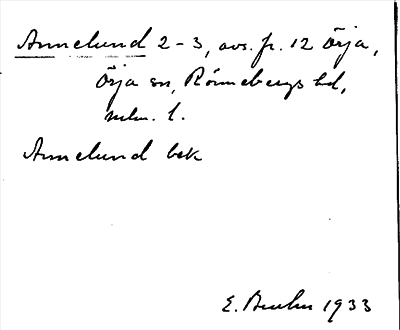 Annelund 2-3, avs. fr. 12 Örja,
Örja sn, Rönnebergs hd,
mlm. l.
Annelund bek
E. 1933